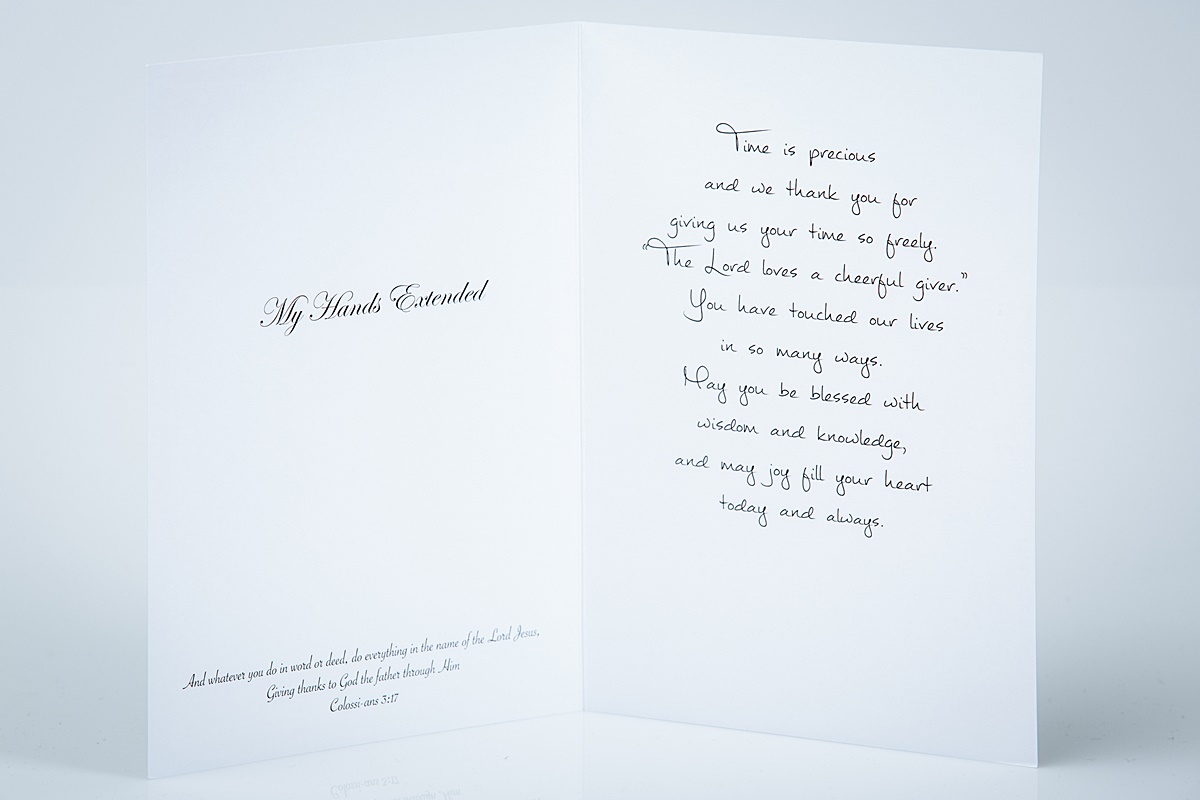 My Hands Extended
And whatever you do in word or deed, do everything in the name of the Lord Jesus,
Giving thanks to God the father through Him
Colossi-ans 3:17
Time is precious
and we thank you for
giving us your time so freely.
“The Lord loves a cheerful giver.”
You have touched our lives
in so many ways.
May you be blessed with
wisdom and knowledge,
and may joy fill your heart
today and always.